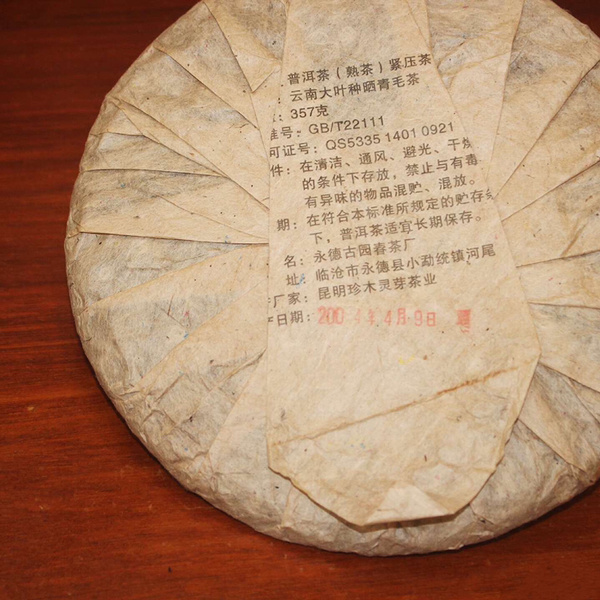 ：普洱茶（熟茶）紧压茶
：云南大叶种晒青毛茶
：357克
准号：GB/T22111
可证号：QS5335 1401 0921
件：在清洁、通风、避光、干燥
的条件下存放，禁止与有毒
有异味的物品混贮、混放。
期：在符合本标准所规定的贮存条
下，普洱茶适宜长期保存。
名：永德古园春茶厂
址：临沧市永德县小勐统镇河尾
厂家：昆明珍木灵芽茶业
产日期：200 年4月9日